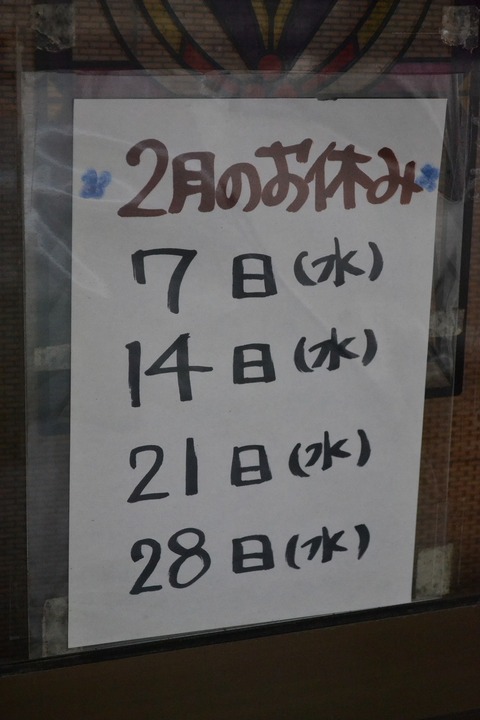 2月のお休み
7日(水)
14日(水)
21日(水)
28日(水)